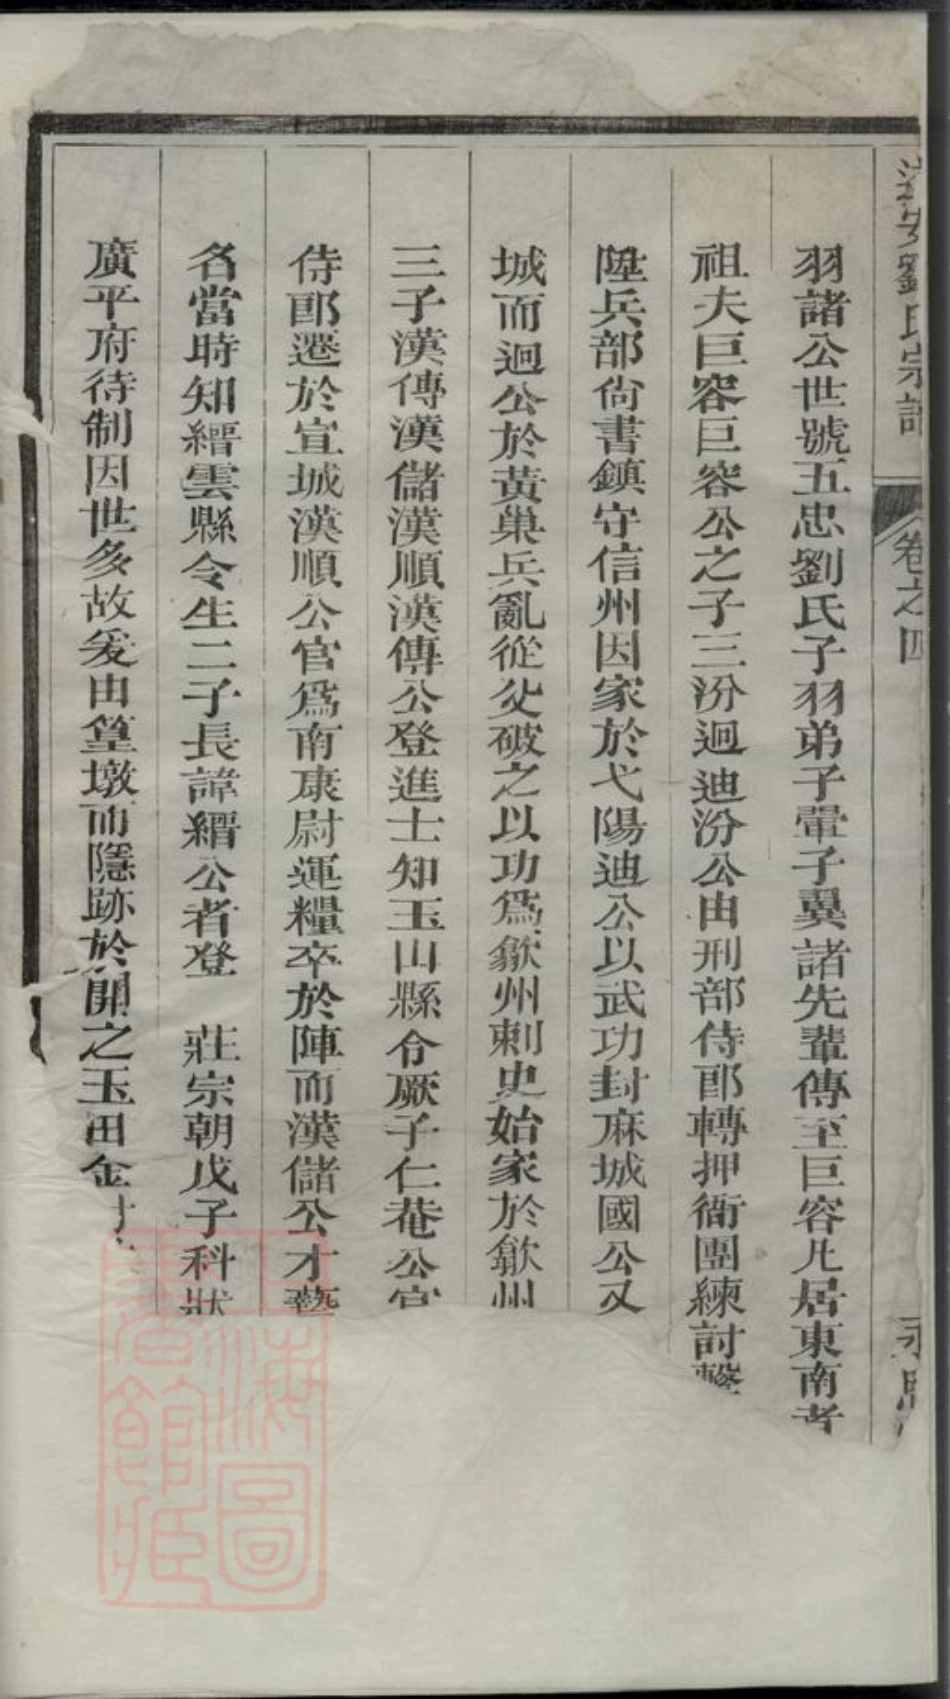 劉氏宗譜
卷之四
羽諸公世號五忠劉氏子羽弟子翬子翼諸先輩傳至巨容凡居東南者
祖夫巨容巨容公之子三汾迥迪汾公由刑部侍郎轉押衙團練討擊
陞兵部尙書鎮守信州因家於弋陽迪公以武功封麻城國公又
城而迥公於黄巢兵亂從父破之以功爲歙州刺史始家於歙州
三子漢傳漢儲漢順漢傳公登進士知玉山縣令厥子仁菴公官
侍郎遷於宣城漢順公官爲南康尉運糧卒於陣而漢儲公才藝
名當時知縉雲縣令生二子長諱縉公者登 莊宗朝戊子科狀
廣平府待制因世多故爰由篁墩而隱跡於開之玉田金村
上海圖書館藏